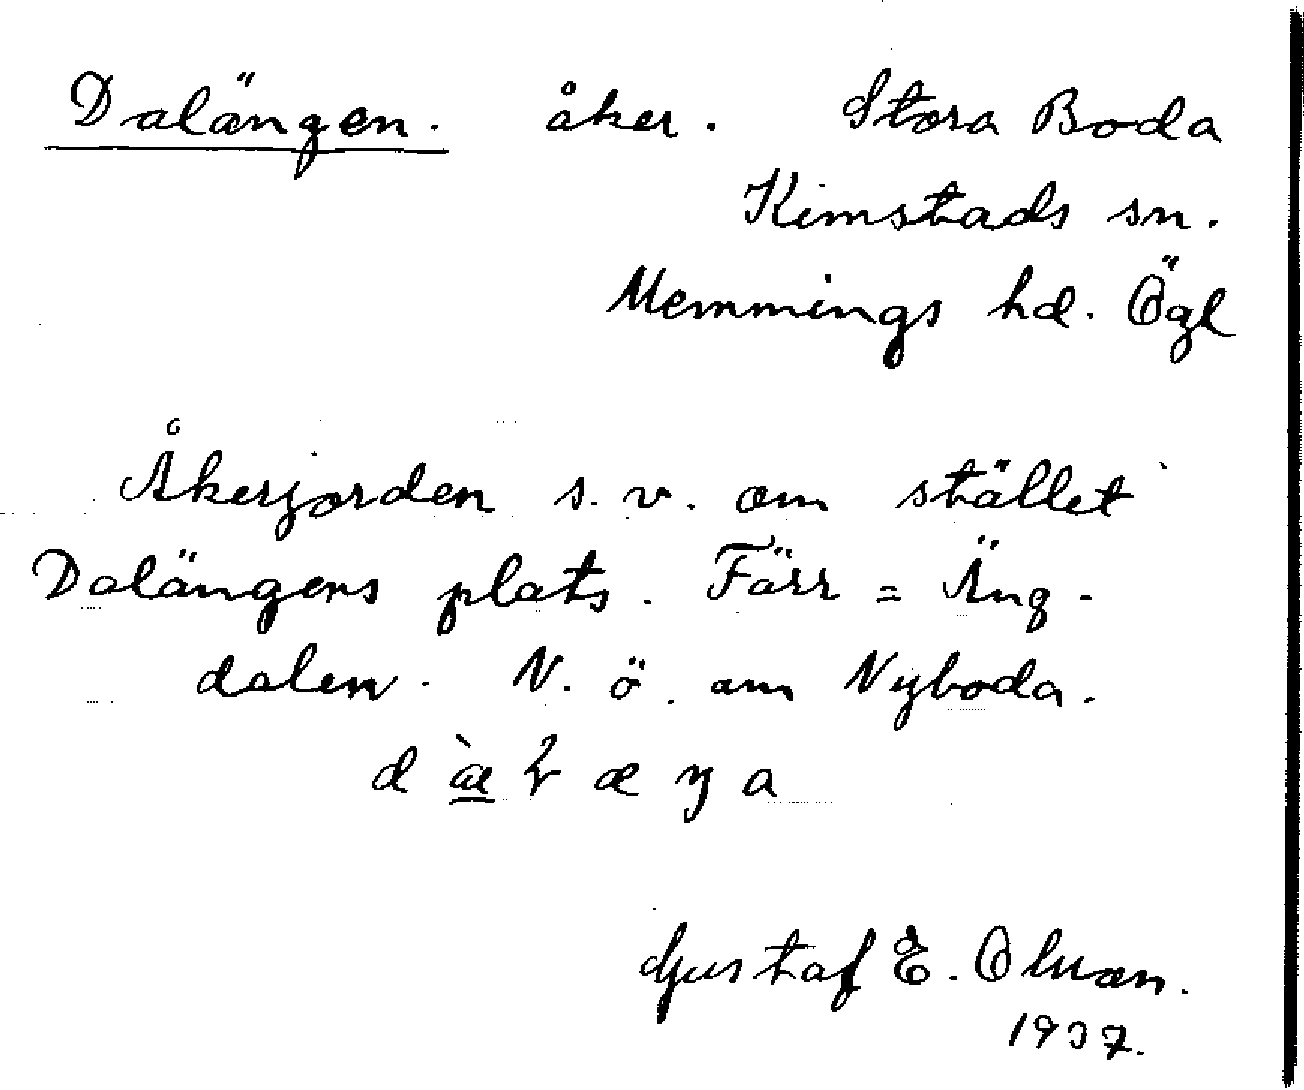 Dalängen. åker. Stora Boda
Kimstads sn.
Memmings hd. Ögl
Åkerjorden s.v. om stället
Dalängens plats. Färr = Äng-
dalen. N. ö. om Nyboda.
Gustaf E.
1937.